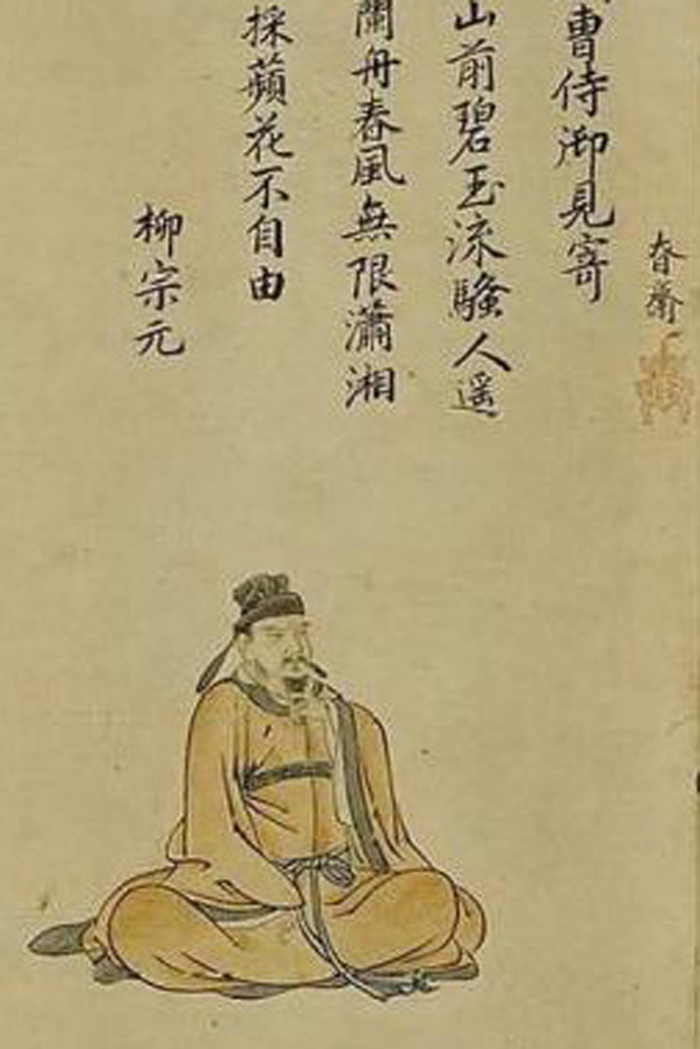 春齋
曹侍御見寄
山前碧玉流騷人遥
蘭舟春風無限瀟湘
採蘋花不自由
柳宗元